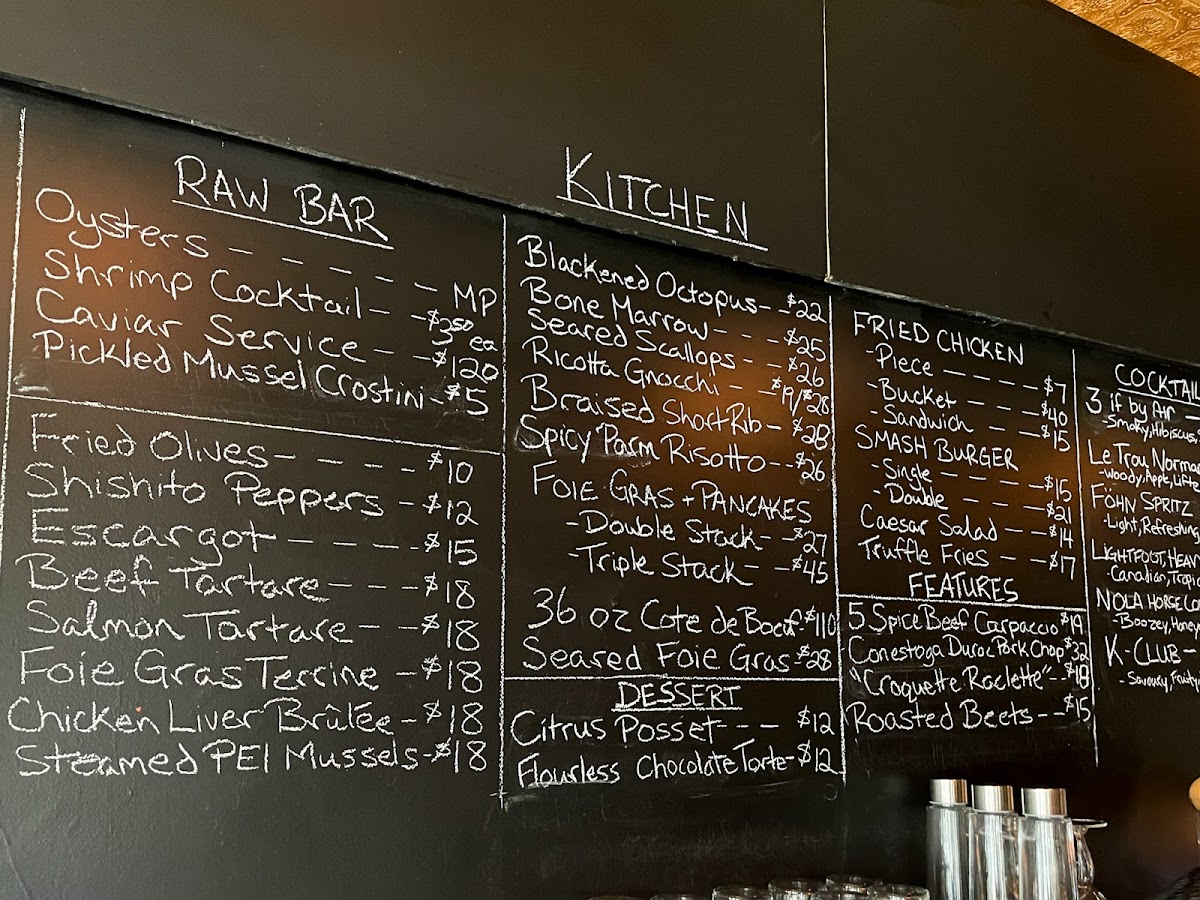 RAW BAR
Oysters - - - - - MP
Shrimp Cocktail - - $3⁵⁰ ea
Caviar Service - - $120
Pickled Mussel Crostini - $5
Fried Olives - - - - $10
Shishito Peppers - - $12
Escargot - - - - $15
Beef Tartare - - - $18
Salmon Tartare - - $18
Foie Gras Terrine - - $18
Chicken Liver Brûlée - $18
Steamed PEI Mussels - $18
KITCHEN
Blackened Octopus - - $22
Bone Marrow - - - $25
Seared Scallops - - $26
Ricotta Gnocchi - - $19/$28
Braised Short Rib - - $28
Spicy 'Parm Risotto - - $26
FOIE GRAS + PANCAKES
- Double Stack - - $27
- Triple Stack - - $45
36 oz Cote de Boeuf - $110
Seared Foie Gras - $28
DESSERT
Citrus Posset - - - $12
Flourless Chocolate Torte - $12
FRIED CHICKEN
- Piece - - - - - $7
- Bucket - - - - $40
- Sandwich - - - $15
SMASH BURGER
- Single - - - - $15
- Double - - - - $21
Caesar Salad - - $14
Truffle Fries - - - $17
FEATURES
5 Spice Beef Carpaccio $19
Conestoga Duroc Pork Chop $32
"Croquette Raclette" - - $18
Roasted Beets - - $15
COCKTAIL
3 If by Air -
- Smoky, Hibiscus
Le Trou Norma
- Woody, Apple, Lifte
FÖHN SPRITZ
- Light, Refreshing,
LIGHTFOOT, HEAV
- Canadian, Tropic
NOLA HORSE CO
- Boozey, Honey
K-CLUB -
- Savoury, Fruity